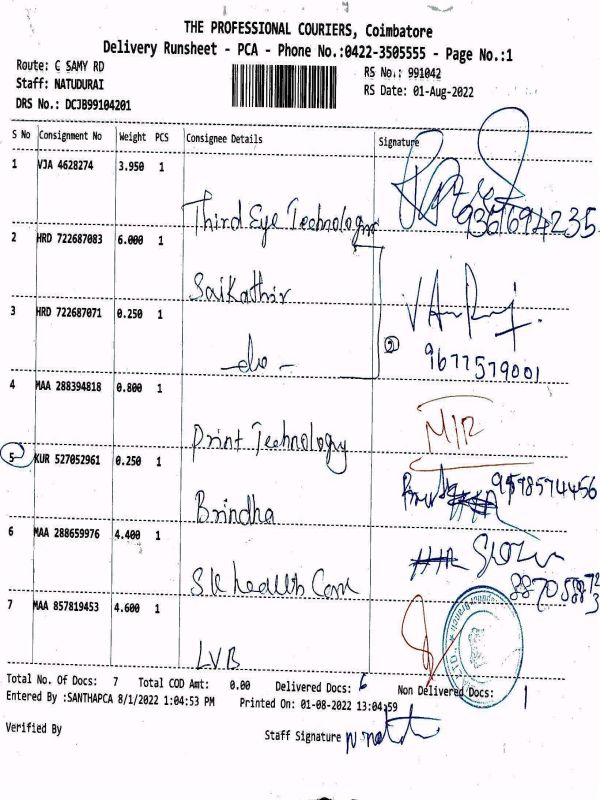 THE PROFESSIONAL COURIERS, Coimbatore
Delivery Runsheet - PCA - Phone No.:0422-3505555 - Page No.:1
Route: G SAMY RD
RS No.: 991042
Staff: NATUDURAI
RS Date: 01-Aug-2022
DRS No.: DCJB99104201
S No Consignment No Weight PCS Consignee Details Signature
1 VJA 4628274 3.950 1
Third Eye Technology
2 HRD 722687083 6.000 1
Saikathir
3 HRD 722687071 0.250 1
-do-
9677579001
4 MAA 288394818 0.800 1
Print Technology
5 KUR 527052961 0.250 1
9578574456
Brindha
6 MAA 288659976 4.400 1
S.K health Care
7 MAA 857819453 4.600 1
LVB
Total No. Of Docs: 7 Total COD Amt: 0.00 Delivered Docs: 6 Non Delivered Docs: 1
Entered By :SANTHAPCA 8/1/2022 1:04:53 PM Printed On: 01-08-2022 13:04:59
Verified By
Staff Signature